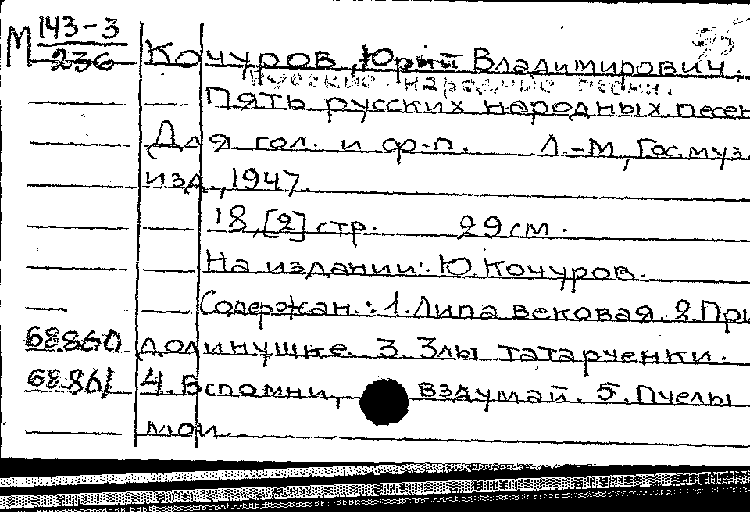 М 143-3 95
236 Кочуров, Юрий Владимирович.
Русские народные песни.
Пять русских народных песен
Для гол. и ф-п. Л.-М., Гос. муз.
изд., 1947.
18, [2] стр. 29 см.
На издании: Ю. Кочуров.
Содержан.: 1. Липа вековая. 2. При
68860 долинушке. 3. Злы татарченки.
68861 4. Вспомни, вздумай. 5. Пчелы
мои.